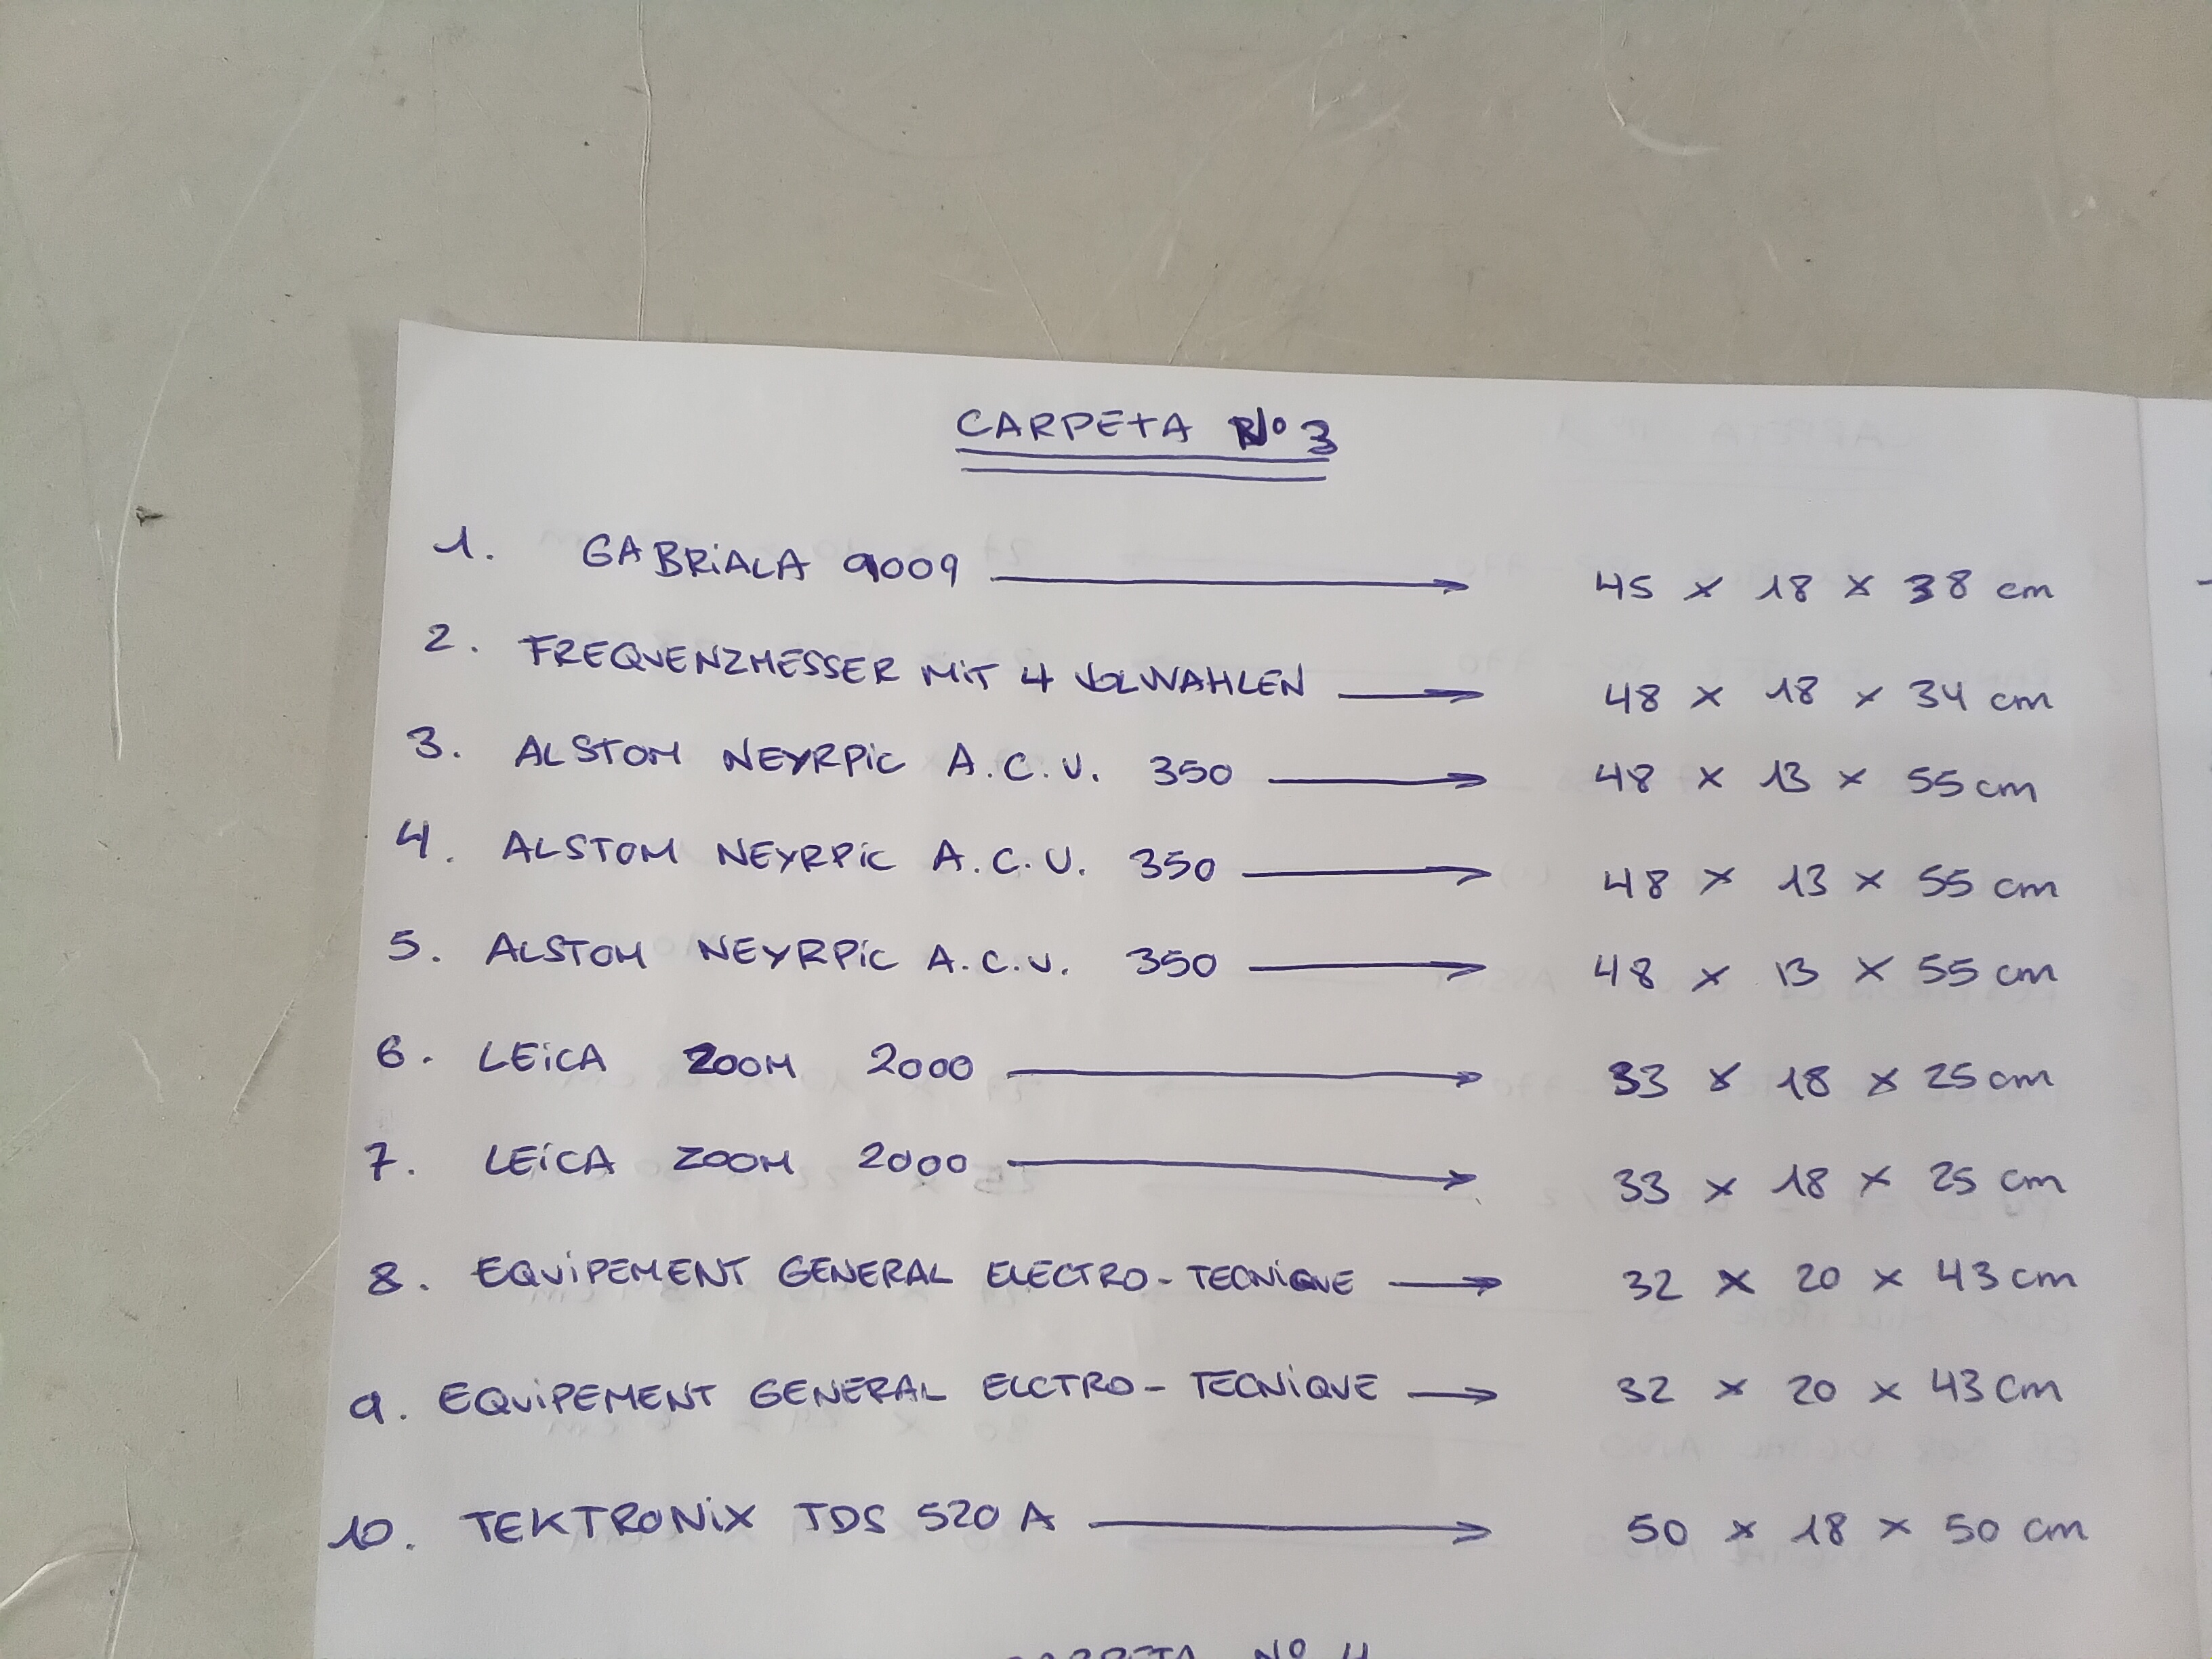 CARPETA Nº 3
1. GABRiALA 9009 → 45 x 18 x 38 cm
2. FREQUENZMESSER MiT 4 VOLWAHLEN → 48 x 18 x 34 cm
3. ALSTOM NEYRPiC A.C.U. 350 → 48 x 13 x 55 cm
4. ALSTOM NEYRPiC A.C.U. 350 → 48 x 13 x 55 cm
5. ALSTOM NEYRPiC A.C.U. 350 → 48 x 13 x 55 cm
6. LEiCA ZOOM 2000 → 33 x 18 x 25 cm
7. LEiCA ZOOM 2000 → 33 x 18 x 25 cm
8. EQUiPEMENT GENERAL ELECTRO-TECNiQUE → 32 x 20 x 43 cm
9. EQUiPEMENT GENERAL ELCTRO-TECNiQUE → 32 x 20 x 43 cm
10. TEKTRONiX TDS 520 A → 50 x 18 x 50 cm
CARPETA Nº 4